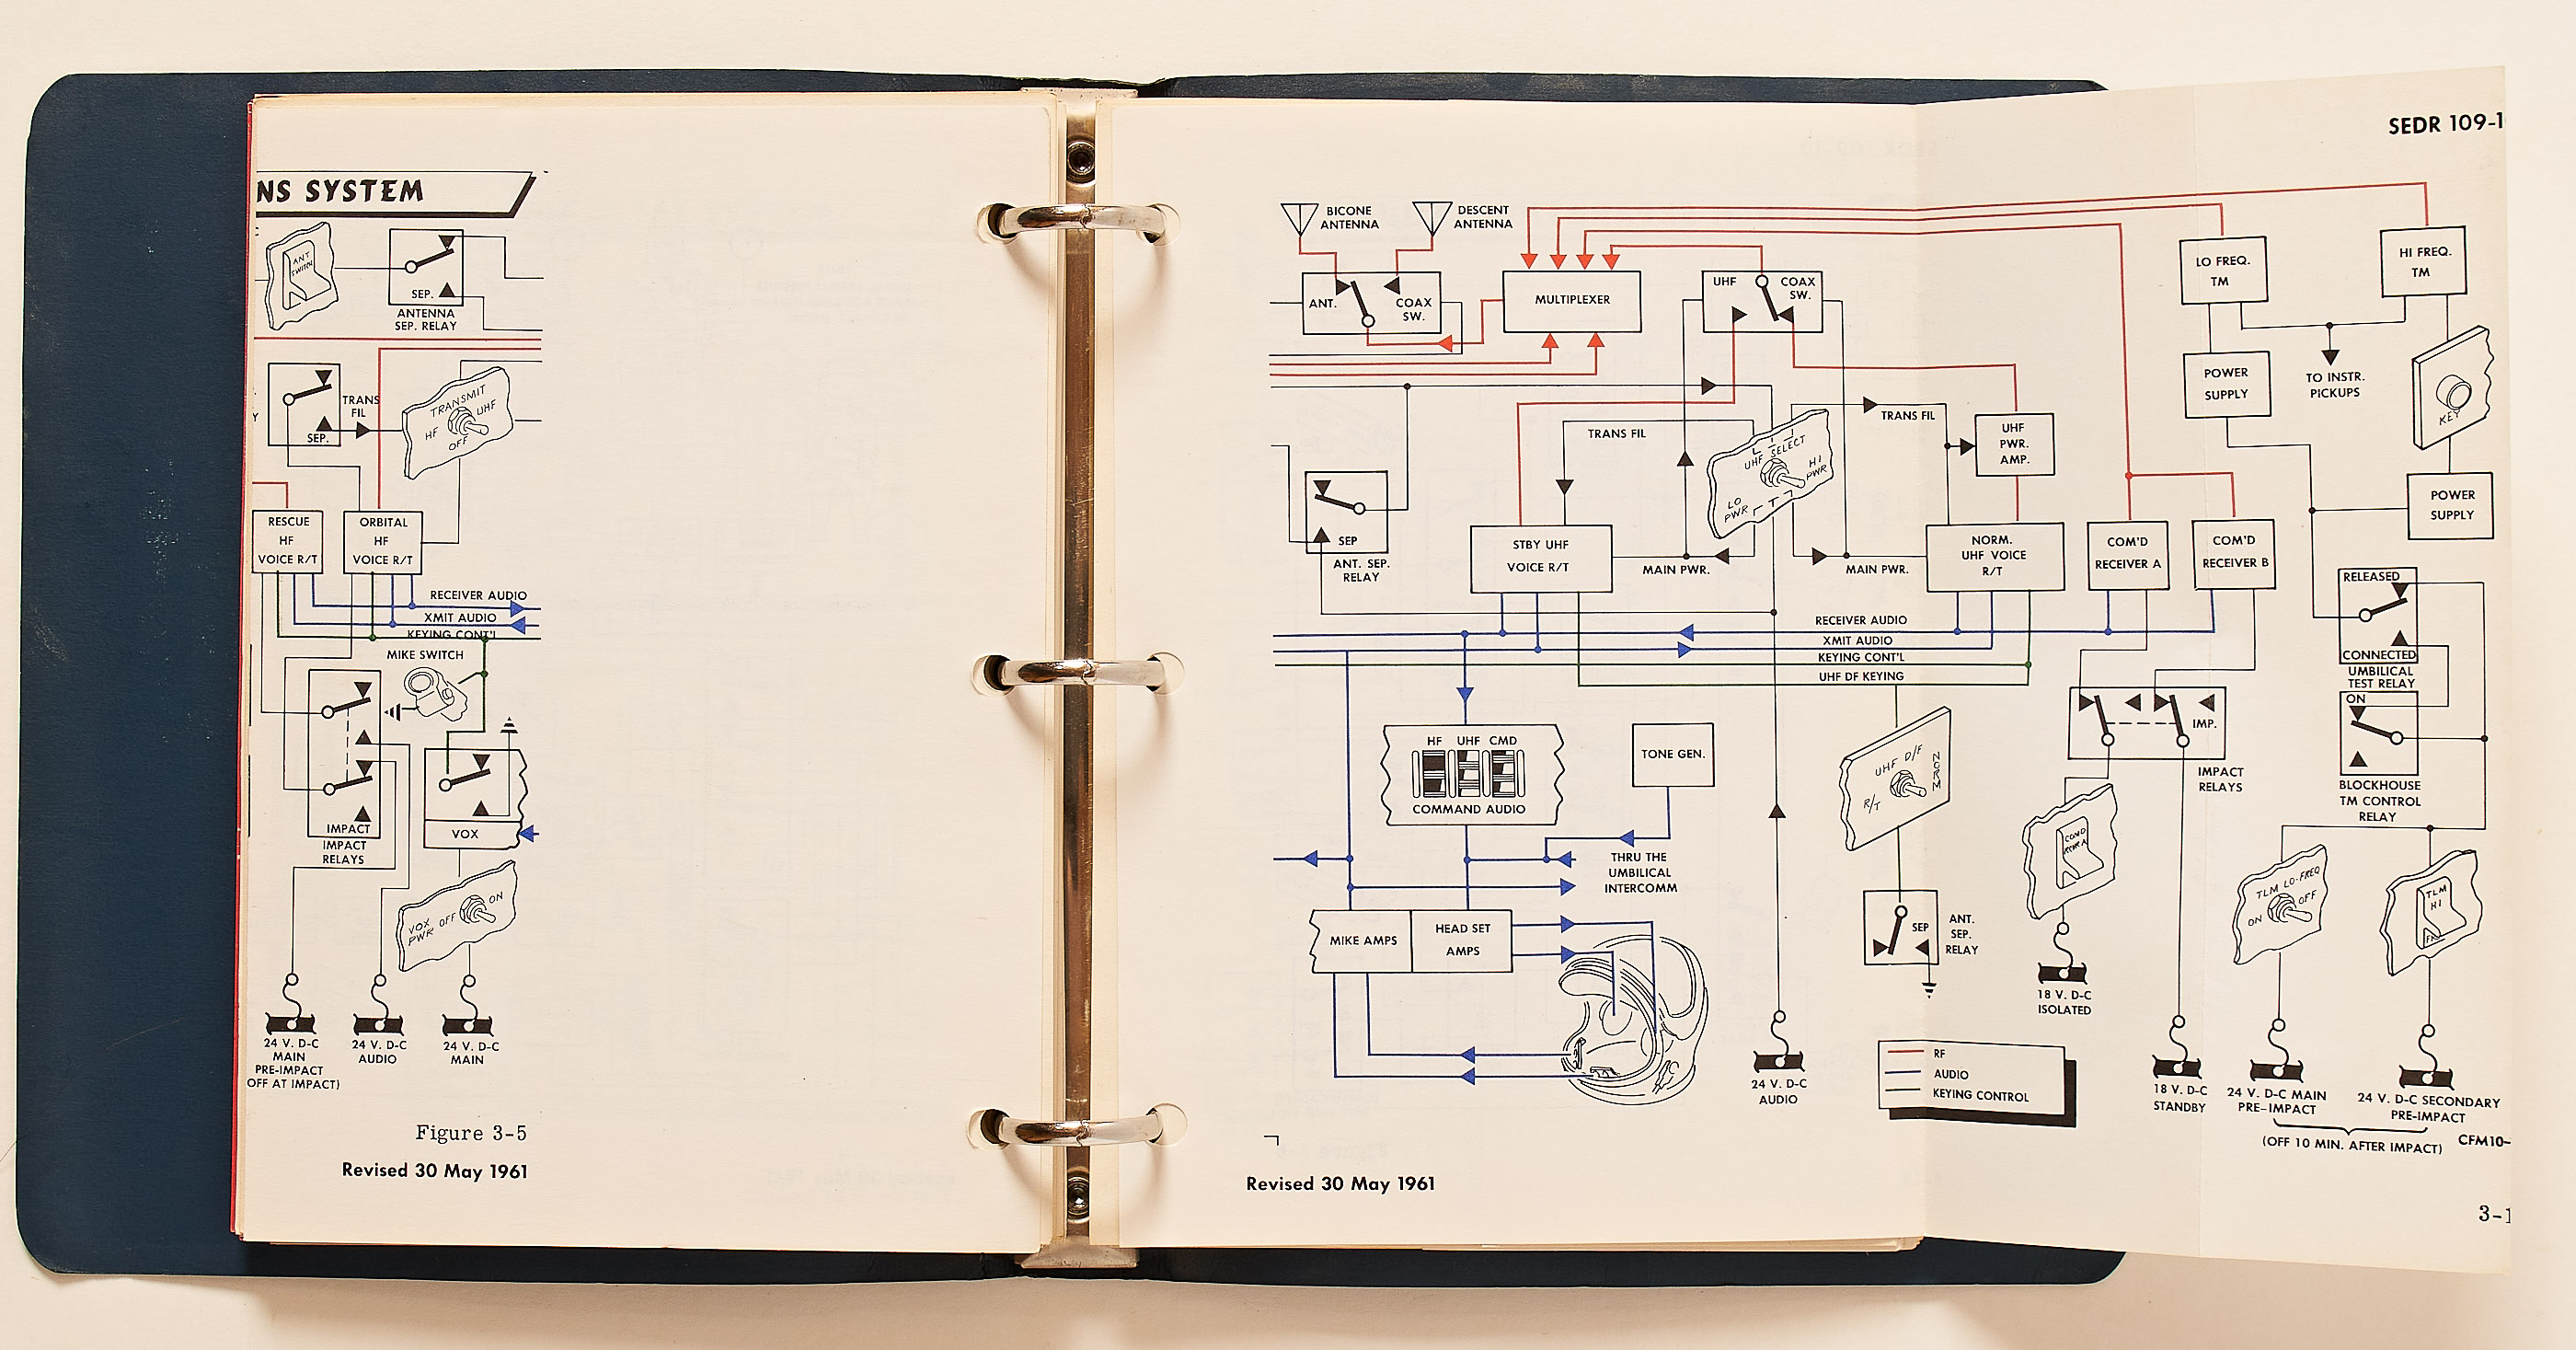 NS SYSTEM
ANT
SWITCH
SEP.
ANTENNA
SEP. RELAY
TRANS
FIL
SEP.
Y
TRANSMIT
HF
UHF
OFF
RESCUE
HF
VOICE R/T
ORBITAL
HF
VOICE R/T
RECEIVER AUDIO
XMIT AUDIO
KEYING CONT'L
MIKE SWITCH
IMPACT
IMPACT
RELAYS
VOX
VOX
PWR
OFF
ON
24 V. D-C
MAIN
PRE-IMPACT
OFF AT IMPACT)
24 V. D-C
AUDIO
24 V. D-C
MAIN
Figure 3-5
Revised 30 May 1961
SEDR 109-1
BICONE
ANTENNA
DESCENT
ANTENNA
ANT.
COAX
SW.
MULTIPLEXER
UHF
COAX
SW.
LO FREQ.
TM
HI FREQ.
TM
POWER
SUPPLY
TO INSTR.
PICKUPS
KEY
TRANS FIL
TRANS FIL
UHF SELECT
LO
PWR
HI
PWR
UHF
PWR.
AMP.
SEP
ANT. SEP.
RELAY
STBY UHF
VOICE R/T
MAIN PWR.
MAIN PWR.
NORM.
UHF VOICE
R/T
COM'D
RECEIVER A
COM'D
RECEIVER B
POWER
SUPPLY
RELEASED
CONNECTED
UMBILICAL
TEST RELAY
ON
BLOCKHOUSE
TM CONTROL
RELAY
RECEIVER AUDIO
XMIT AUDIO
KEYING CONT'L
UHF DF KEYING
HF UHF CMD
COMMAND AUDIO
TONE GEN.
THRU THE
UMBILICAL
INTERCOMM
MIKE AMPS
HEAD SET
AMPS
UHF D/F
R/T
NORM
SEP
ANT.
SEP.
RELAY
IMP.
IMPACT
RELAYS
18 V. D-C
ISOLATED
TLM LO-FREQ
ON
OFF
TLM
HI
24 V. D-C
AUDIO
RF
AUDIO
KEYING CONTROL
18 V. D-C
STANDBY
24 V. D-C MAIN
PRE-IMPACT
24 V. D-C SECONDARY
PRE-IMPACT
(OFF 10 MIN. AFTER IMPACT)
CFM10-
Revised 30 May 1961
3-1